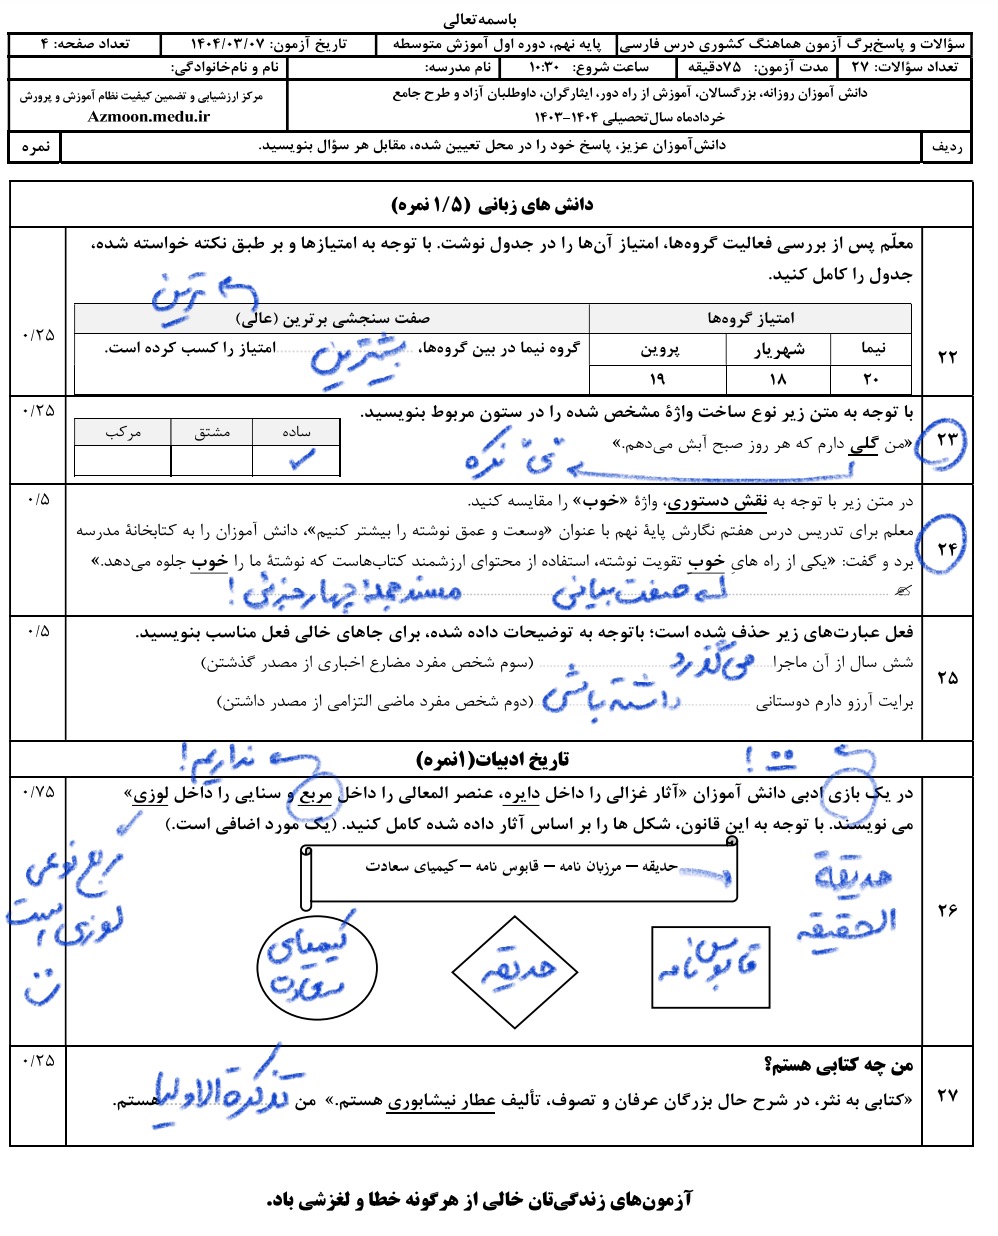 باسمه‌تعالی
سؤالات و پاسخ‌برگ آزمون هماهنگ کشوری درس فارسی | پایه نهم، دوره اول آموزش متوسطه | تاریخ آزمون: ۱۴۰۴/۰۳/۰۷ | تعداد صفحه: ۴
تعداد سؤالات: ۲۷ | مدت آزمون: ۷۵دقیقه | ساعت شروع: ۱۰:۳۰ | نام مدرسه: | نام و نام‌خانوادگی:
دانش آموزان روزانه، بزرگسالان، آموزش از راه دور، ایثارگران، داوطلبان آزاد و طرح جامع
خردادماه سال‌تحصیلی ۱۴۰۴-۱۴۰۳
مرکز ارزشیابی و تضمین کیفیت نظام آموزش و پرورش
Azmoon.medu.ir
ردیف | دانش‌آموزان عزیز، پاسخ خود را در محل تعیین شده، مقابل هر سؤال بنویسید. | نمره
دانش های زبانی (۱/۵ نمره)
۲۲
معلّم پس از بررسی فعالیت گروه‌ها، امتیاز آن‌ها را در جدول نوشت. با توجه به امتیازها و بر طبق نکته خواسته شده،
جدول را کامل کنید.
ترین
۰/۲۵
امتیاز گروه‌ها | صفت سنجشی برترین (عالی)
نیما | شهریار | پروین
۲۰ | ۱۸ | ۱۹
گروه نیما در بین گروه‌ها، بیشترین امتیاز را کسب کرده است.
۲۳
با توجه به متن زیر نوع ساخت واژهٔ مشخص شده را در ستون مربوط بنویسید.
۰/۲۵
«من گلی دارم که هر روز صبح آبش می‌دهم.»
"ی" نکره
ساده | مشتق | مرکب
✓
۲۴
در متن زیر با توجه به نقش دستوری، واژهٔ «خوب» را مقایسه کنید.
۰/۵
معلم برای تدریس درس هفتم نگارش پایهٔ نهم با عنوان «وسعت و عمق نوشته را بیشتر کنیم»، دانش آموزان را به کتابخانهٔ مدرسه
برد و گفت: «یکی از راه هایِ خوبِ تقویت نوشته، استفاده از محتوای ارزشمند کتاب‌هاست که نوشتهٔ ما را خوب جلوه می‌دهد.»
صفت بیانی مسند جملهٔ چهار جزئی!
۲۵
فعل عبارت‌های زیر حذف شده است؛ باتوجه به توضیحات داده شده، برای جاهای خالی فعل مناسب بنویسید.
۰/۵
شش سال از آن ماجرا می‌گذرد (سوم شخص مفرد مضارع اخباری از مصدر گذشتن)
برایت آرزو دارم دوستانی داشته باشی (دوم شخص مفرد ماضی التزامی از مصدر داشتن)
تاریخ ادبیات(۱نمره)
نداریم!
۲۶
در یک بازی ادبی دانش آموزان «آثار غزالی را داخل دایره، عنصر المعالی را داخل مربع و سنایی را داخل لوزی»
۰/۷۵
می نویسند. با توجه به این قانون، شکل ها را بر اساس آثار داده شده کامل کنید. (یک مورد اضافی است.)
مربع نوعی
لوزی است
حدیقه – مرزبان نامه – قابوس نامه – کیمیای سعادت
حدیقة
الحقیقه
قابوس نامه
حدیقه
کیمیای سعادت
۲۷
من چه کتابی هستم؟
۰/۲۵
«کتابی به نثر، در شرح حال بزرگان عرفان و تصوف، تألیف عطار نیشابوری هستم.» من تذکرة الاولیا هستم.
آزمون‌های زندگی‌تان خالی از هرگونه خطا و لغزشی باد.